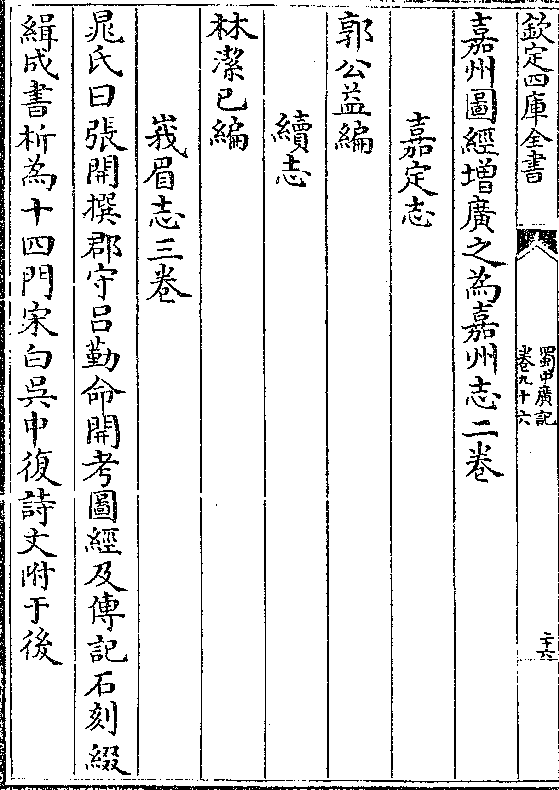 欽定四庫全書
蜀中廣記
卷九十六
二十六
嘉州圖經增廣之為嘉州志二卷
嘉定志
郭公益編
續志
林潔已編
峩眉志三卷
晁氏曰張開撰郡守呂勤命開考圖經及傳記石刻綴
緝成書析為十四門宋白吳中復詩文附于後